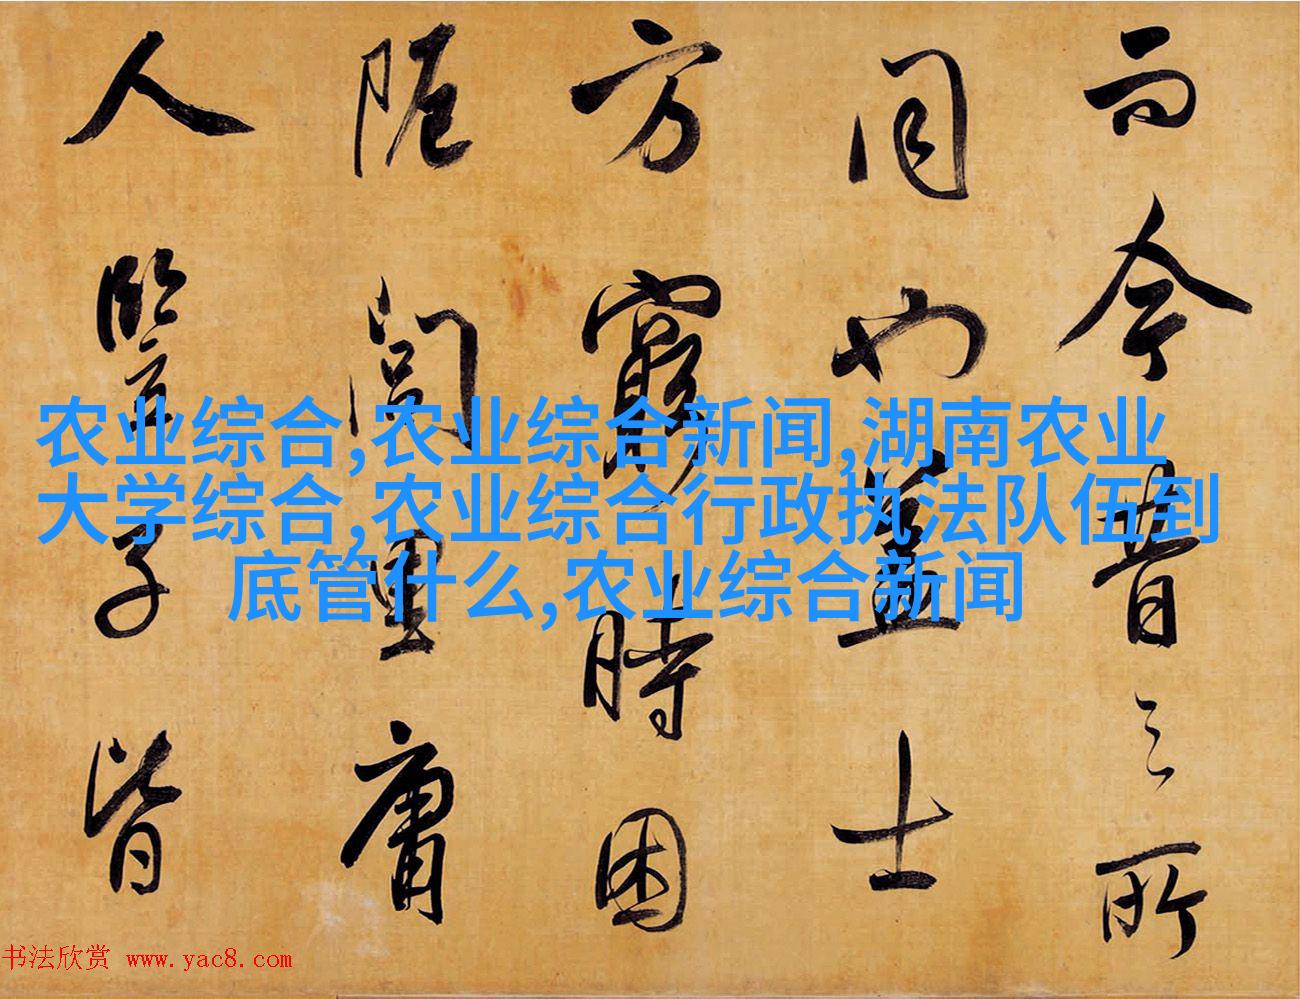 而今昔之所
同也蓋士
方窮時困
阨閭里庸
人竪子皆
农业综合,农业综合新闻,湖南农业
大学综合,农业综合行政执法队伍到
底管什么,农业综合新闻
书法欣赏 www.yac8.com